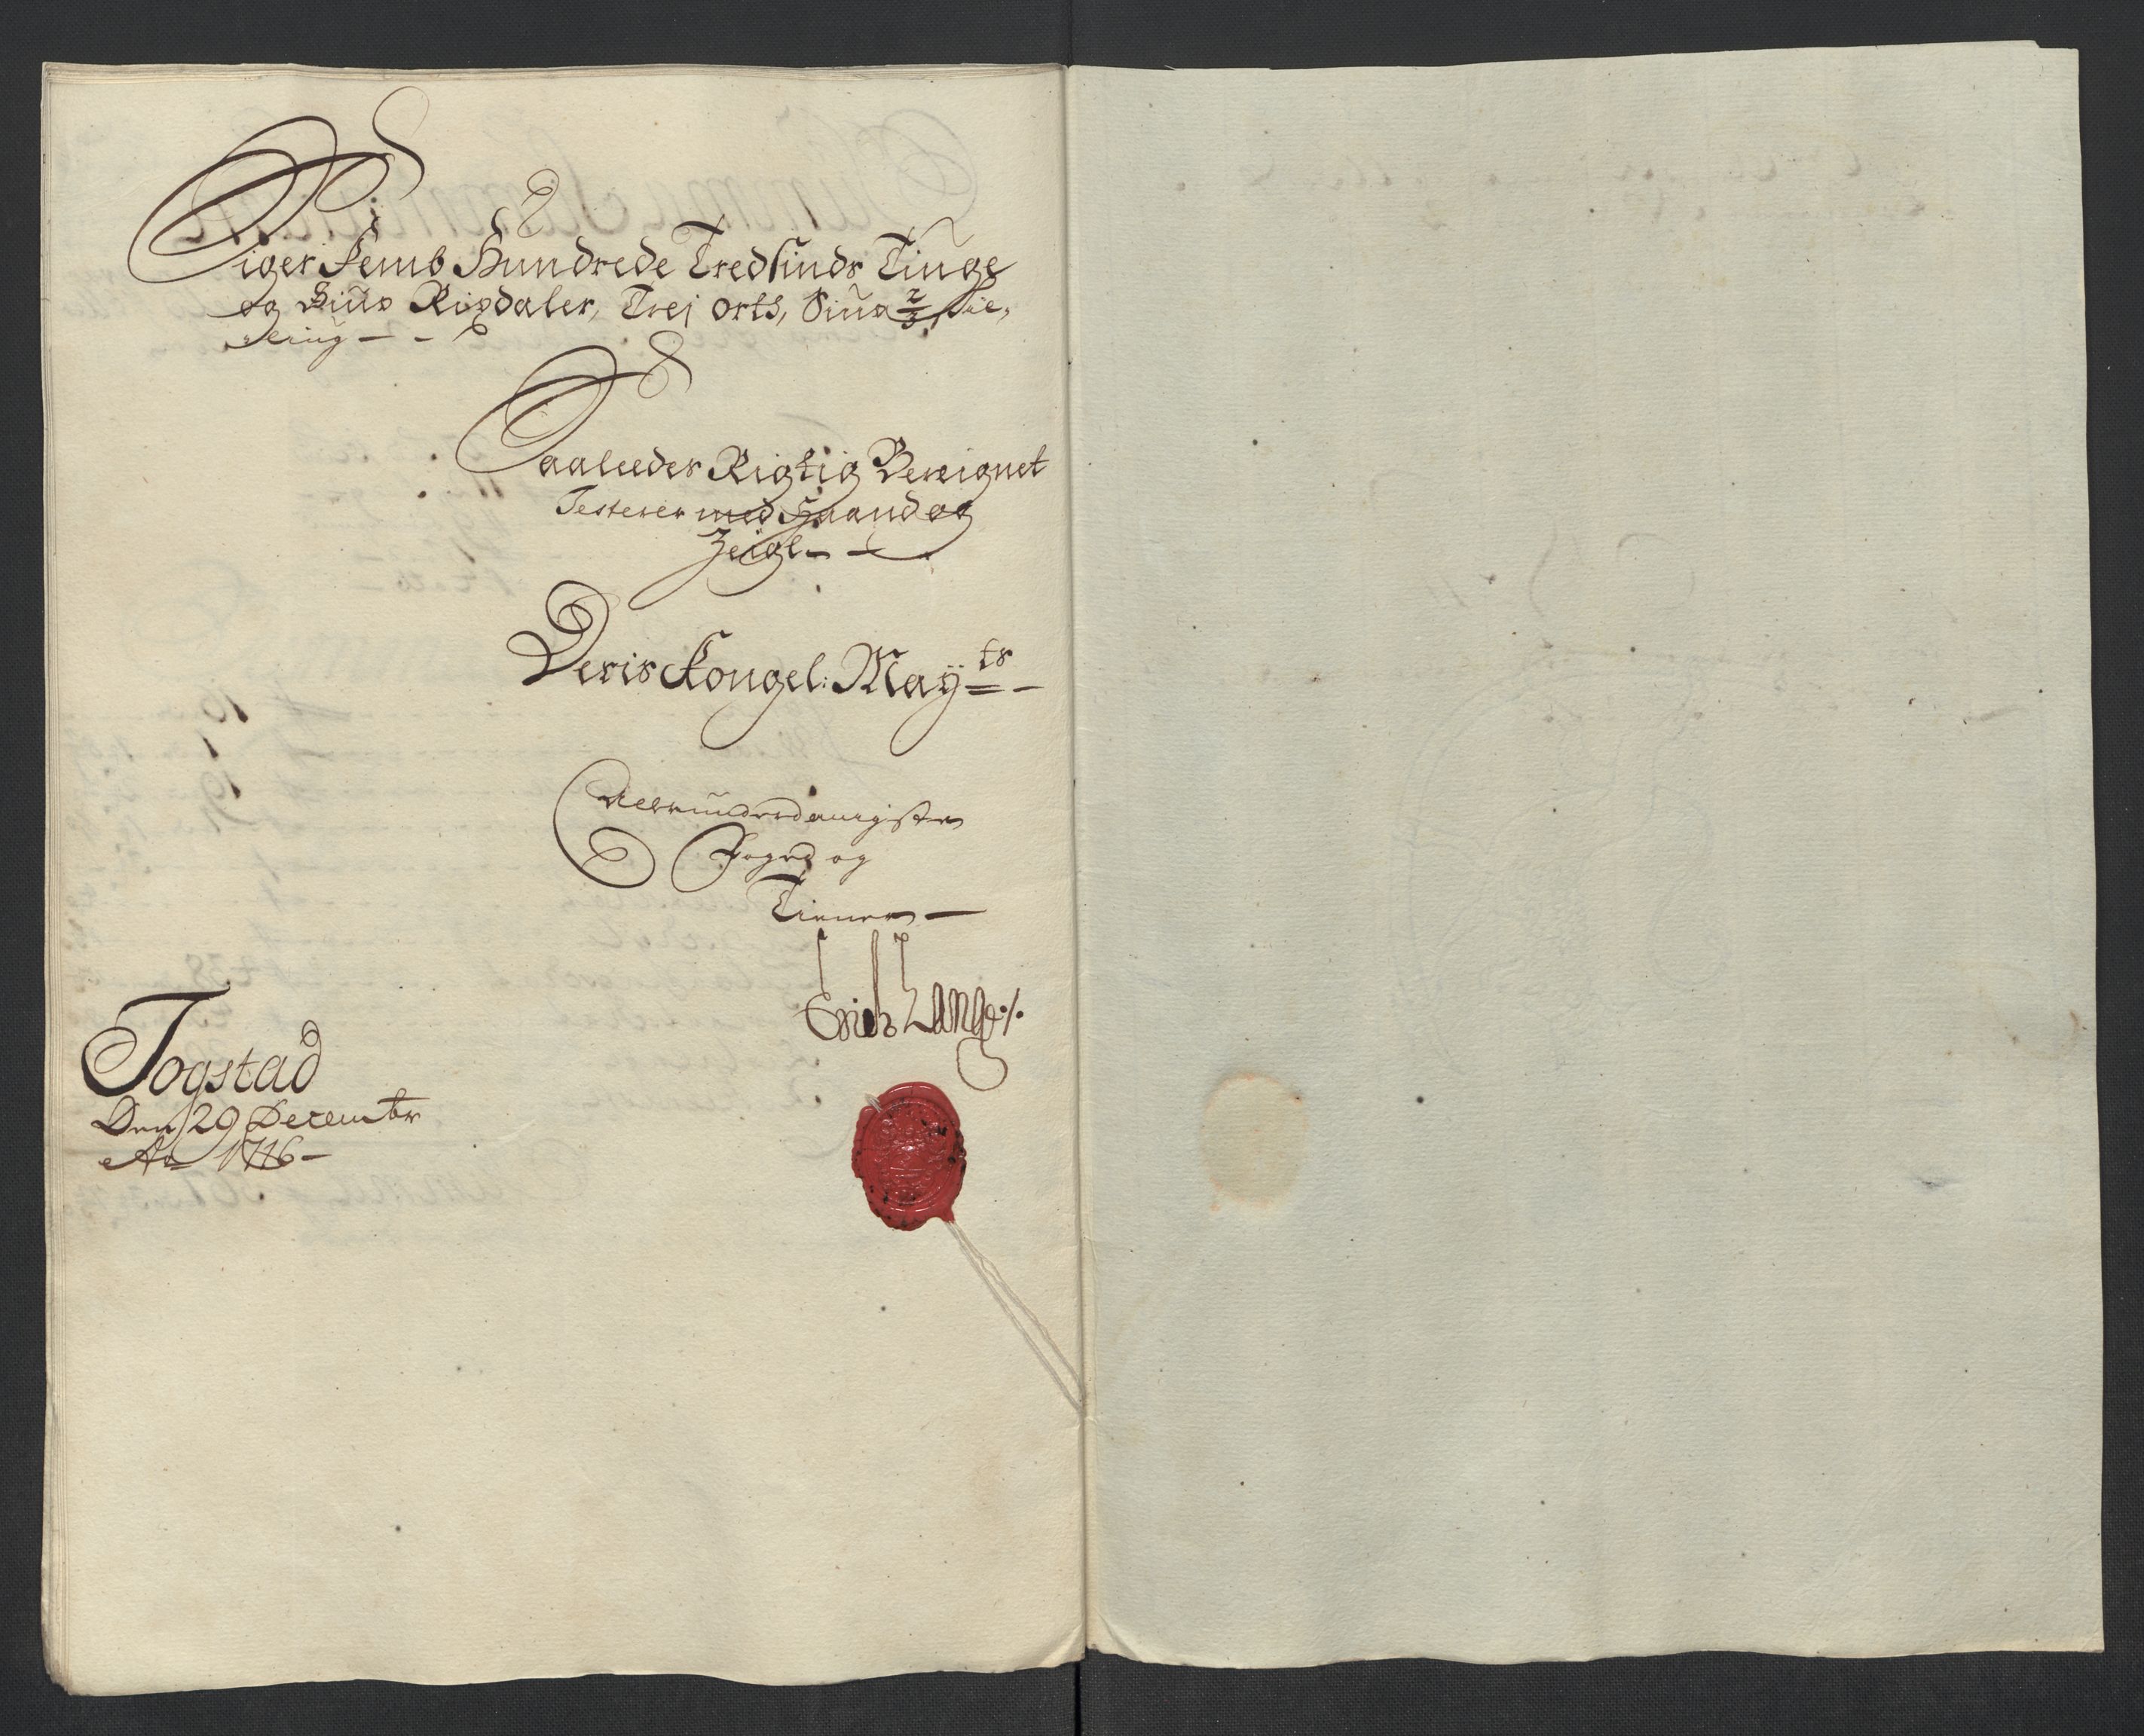 Siger Femb Hundrede Tredsinds Tiuge
og Siuf Rixdaler, Trej Orts, Siuf 2/3 skil,
ling — -
Saaleedes Rigtig Bereignet
Testerer med Haand og
Zeigl — —
Deris Kongel: Maÿts —
Allerunderdanigste
Foged og
Tiener —
Erich Lange ./.
Togstad
Den 29 Decembr
Ao 1716 —